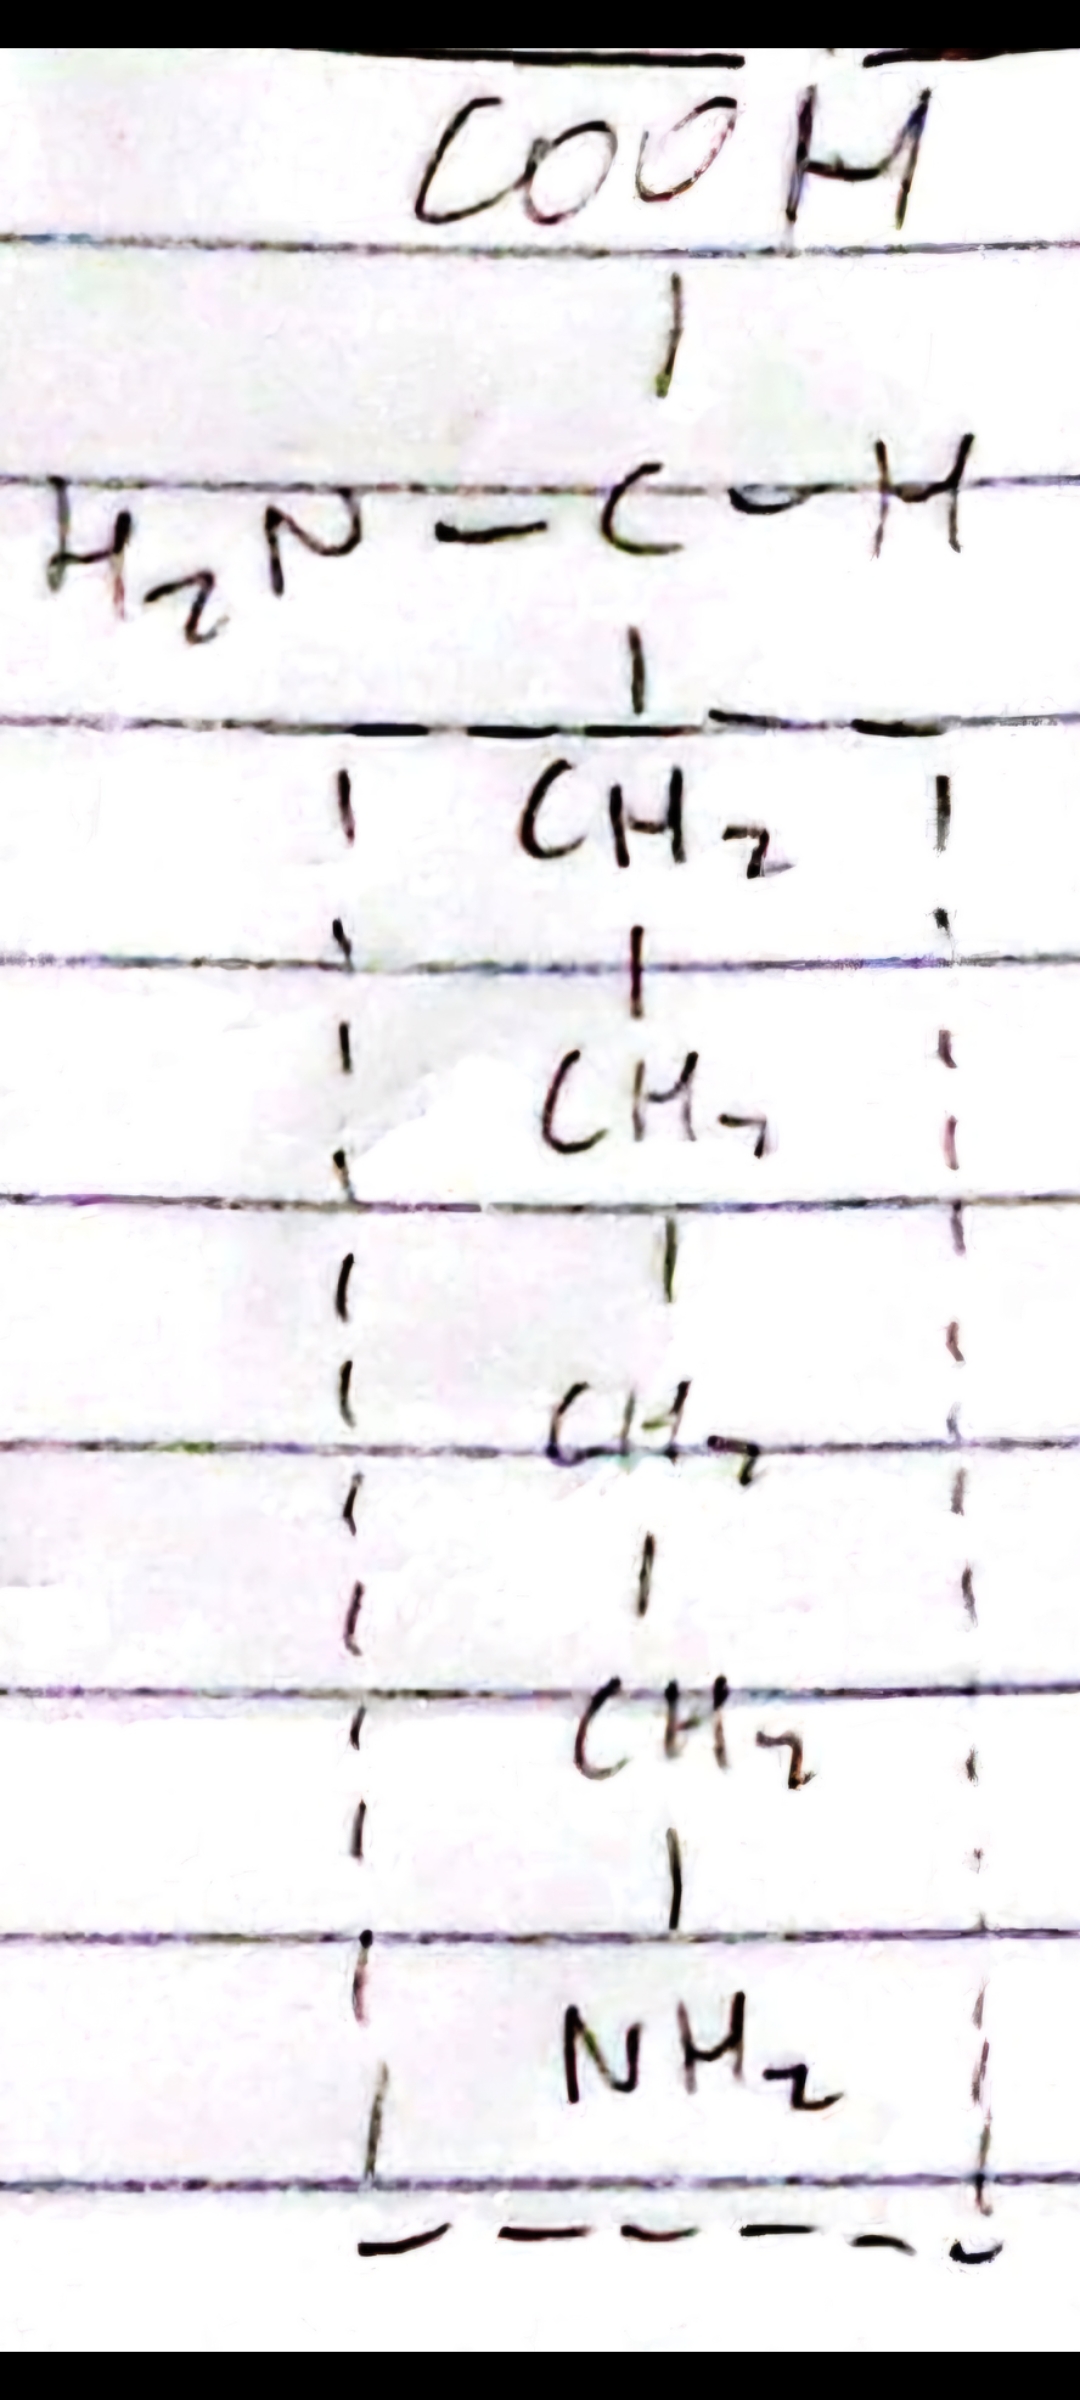 COOH
|
H2N - C - H
|
CH2
|
CH2
|
CH2
|
CH2
|
NH2